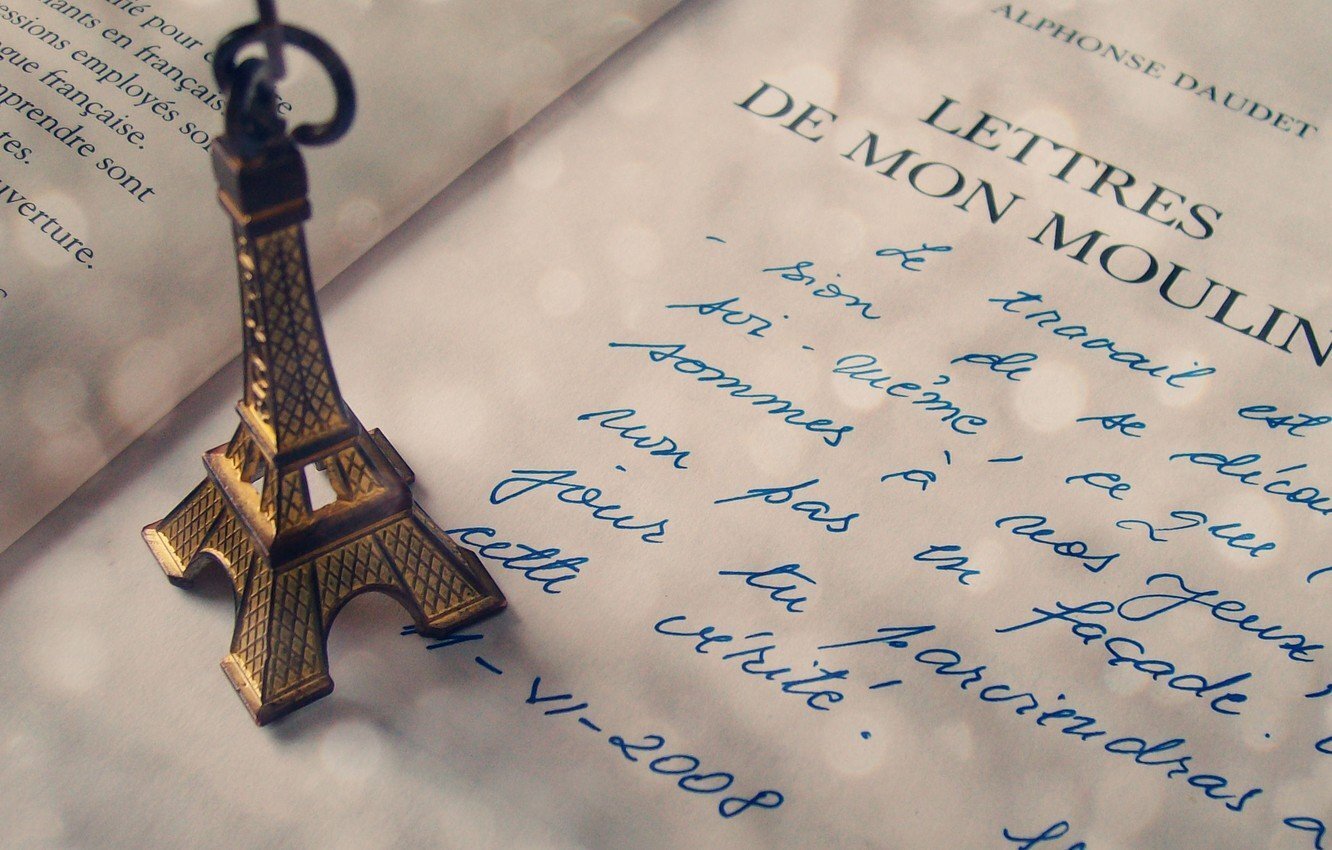 ié pour
ants en français
essions employés so
gue française.
prendre sont
tes.
uverture.
ALPHONSE DAUDET
LETTRES
DE MON MOULIN
Le travail est
- sion de se décou
soi-même, ce que
sommes à nos yeux,
non pas en façade.
jour tu parviendras a
cette vérité.
VI-2008